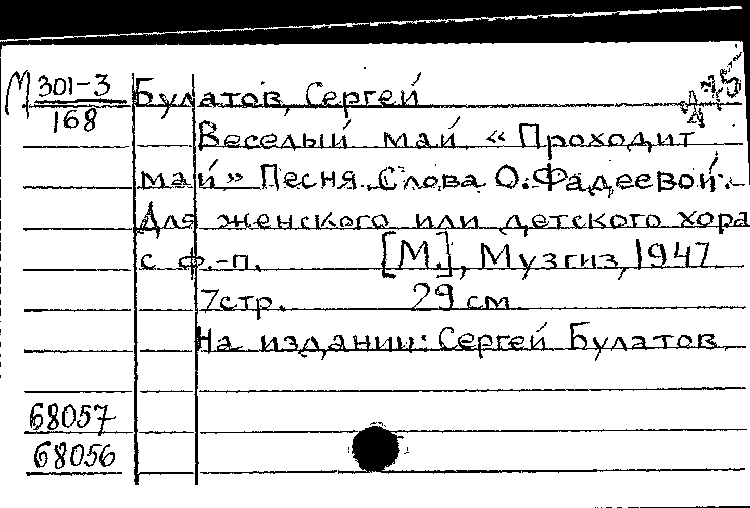 М 301-3 Булатов, Сергей
168
Веселый май «Проходит
май» Песня. Слова О. Фадеевой.
Для женского или детского хора
с ф.-п. [М.], Музгиз, 1947
7 стр. 29 см
На издании: Сергей Булатов
68057
68056